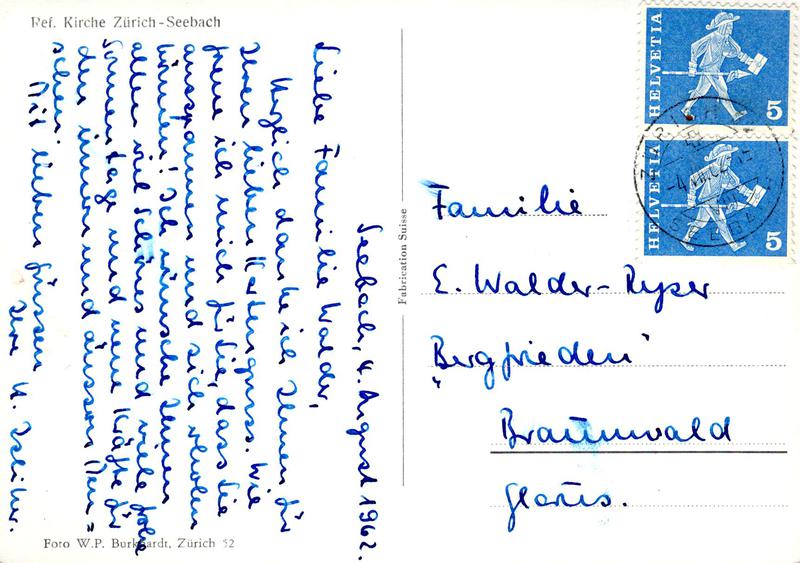 Ref. Kirche Zürich-Seebach
Seebach, 4. August 1962.
Liebe Familie Walder,
Herzlich danke ich Ihnen für
Ihren lieben Kartengruss. Wie
freue ich mich für Sie, dass Sie
ausspannen und sich erholen
können! Ich wünsche Ihnen
allen viel Schönes und viele frohe
Sonnentage und neue Kräfte für
den innern und äussern Men=
schen.
Mit lieben Grüssen
Ihre H.
Foto W.P. Burkhardt, Zürich 52
Fabrication Suisse
HELVETIA
5
HELVETIA
5
ZÜRICH
SEEBACH
Familie
E. Walder-Ryser
"Bergfrieden"
Braunwald
Glarus.